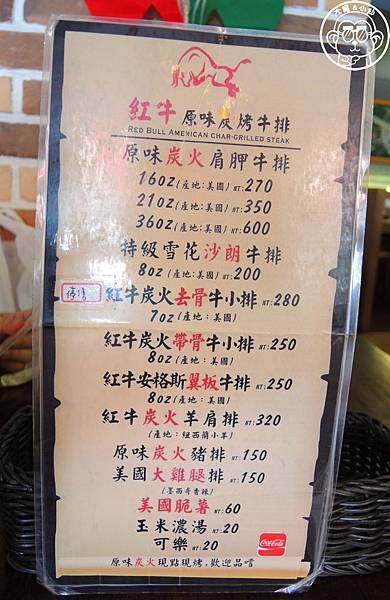 大胃&小幻
紅牛 原味炭烤牛排
RED BULL AMENICAN CHAR-GRILLED STEAK
原味炭火肩胛牛排
16OZ(產地:美國)NT:270
21OZ(產地:美國)NT:350
36OZ(產地:美國)NT:600
特級雪花沙朗牛排
8OZ(產地:美國)NT:200
紅牛炭火去骨牛小排 NT:280
7OZ(產地:美國)
紅牛炭火帶骨牛小排 NT:250
8OZ(產地:美國)
紅牛安格斯翼板牛排 NT:250
8OZ(產地:美國)
紅牛炭火羊肩排 NT:320
(產地:紐西蘭小羊)
原味炭火豬排 NT:150
美國大雞腿排 NT:150
(墨西哥香辣)
美國脆薯 NT:60
玉米濃湯 NT:20
可樂 NT:20
Coca-Cola
原味炭火現點現烤,歡迎品嚐